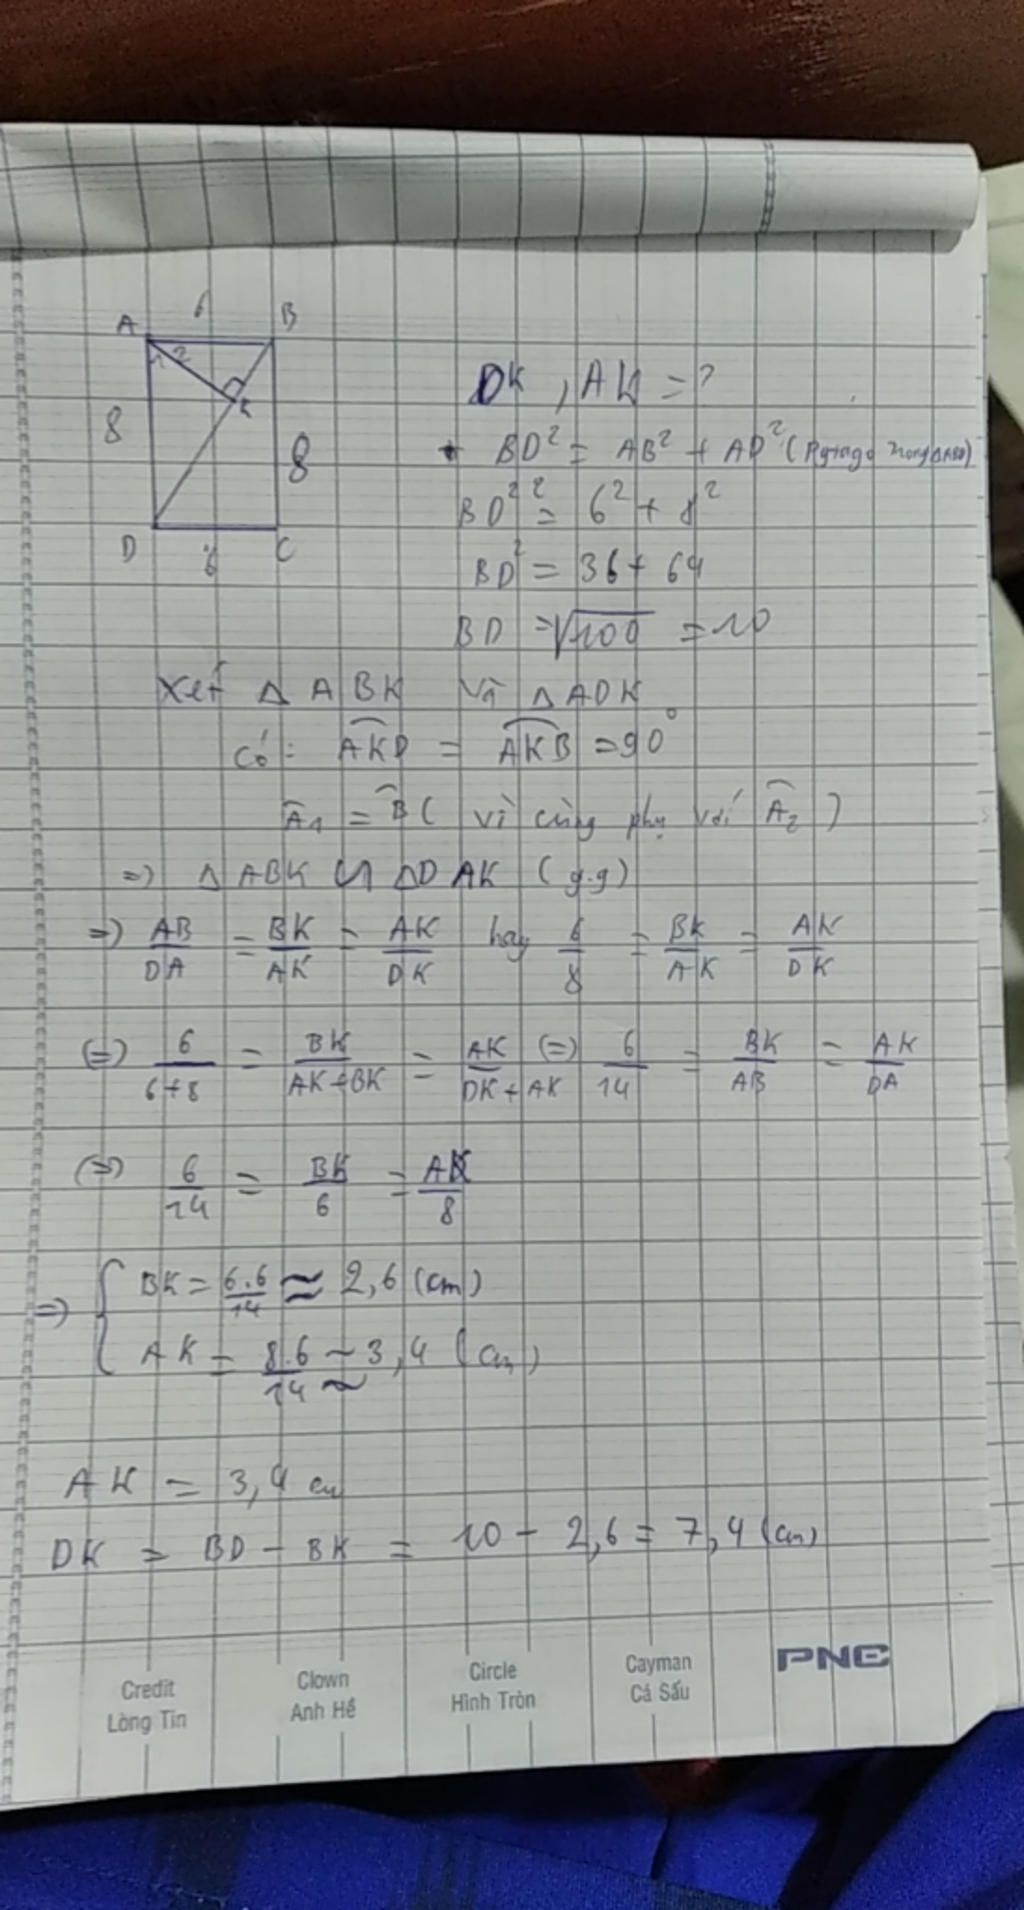 6
A B
1 2
K
8 8
D C
6
DK , AK = ?
+ BD² = AB² + AD² (Pytago trong ΔABD)
BD² = 6² + 8²
BD² = 36 + 64
BD = √100 = 10
Xét Δ ABK và Δ ADK
Có: AKD = AKB = 90°
A₁ = B ( vì cùng phụ với A₂ )
=> Δ ABK ∽ ΔDAK (g.g)
=> AB/DA = BK/AK = AK/DK hay 6/8 = BK/AK = AK/DK
(=) 6/(6+8) = BK/(AK+BK) = AK/(DK+AK) (=) 6/14 = BK/AB = AK/DA
(=) 6/14 = BK/6 = AK/8
=> { BK = 6.6/14 ≈ 2,6 (cm)
AK = 8.6/14 ≈ 3,4 (cm)
AK = 3,4 cm
DK = BD - BK = 10 - 2,6 = 7,4 (cm)
PNE
Credit Clown Circle Cayman
Lòng Tin Anh Hề Hình Tròn Cá Sấu